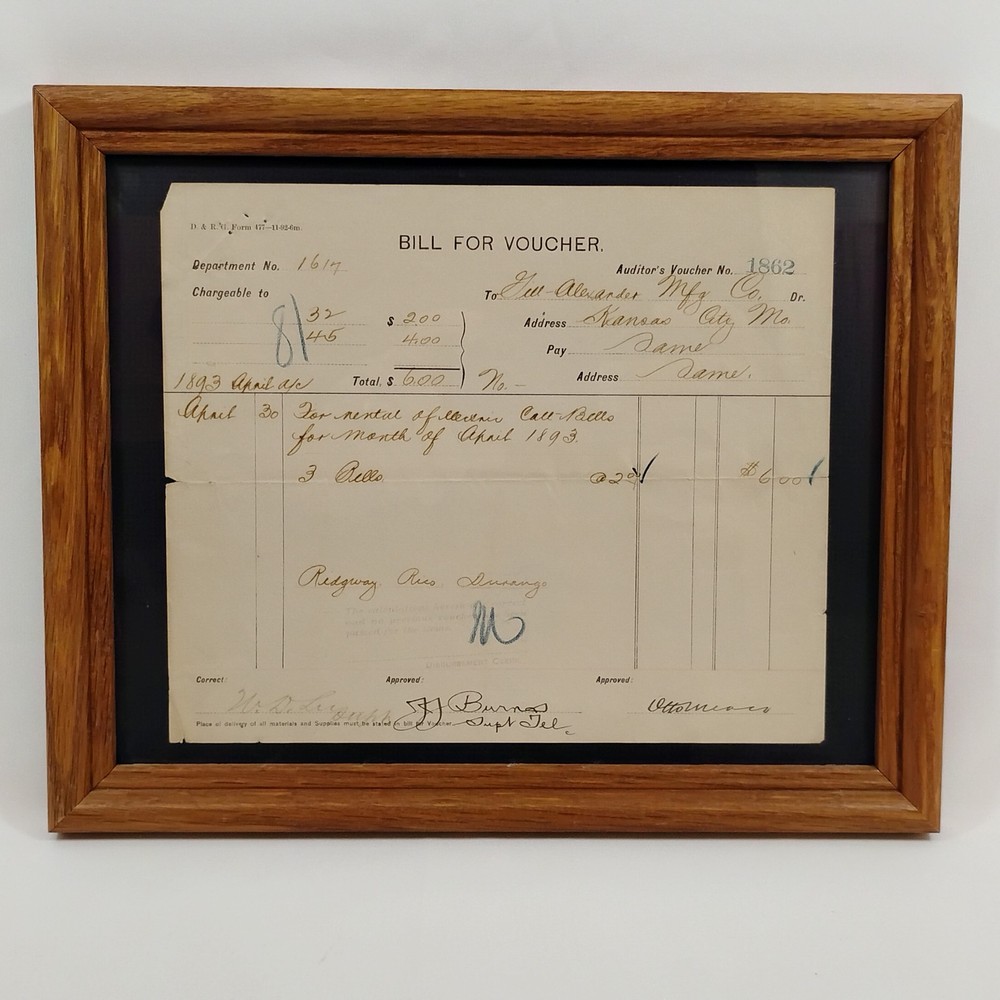 D. & R. G. Form 477—11-92-6m.
BILL FOR VOUCHER.
Department No. 1617
Auditor's Voucher No. 1862
Chargeable to
To Gill-Alexander Mfg Co. Dr.
81 32 $ 2.00
Address Kansas City Mo.
45 4.00
Pay Same
1893 April a/c Total, $ 6.00 No. - Address Same.
April 30 For rental of Electric Call-Bells
for month of April 1893.
3 Bells @ 2.00 $6.00
Ridgway, Rico, Durango
M
Correct: Approved: Approved:
W. D. Lee Supt
J J Burns
Supt Tel.
Otto Mears
Place of delivery of all materials and Supplies must be stated in bill for Voucher.